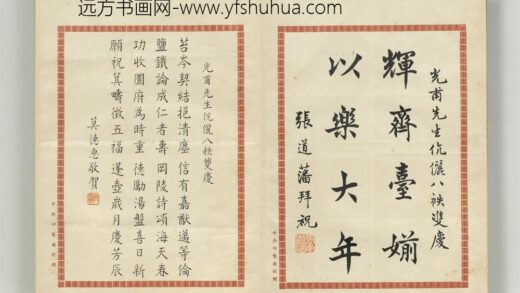 远方书画网-www.yfshuhua.com
光甫先生伉儷八袟雙慶
輝齊臺婺
以樂大年
張道藩拜祝
光甫先生伉儷八袟雙慶
苔岑契結挹清塵 信有嘉猷邁等倫
鹽鐵論成仁者壽 岡陵詩頌海天春
功收圜府為時重 德勵湯盤喜日新
願祝箕疇徵五福 蓬壺歲月慶芳辰
莫德惠敬賀